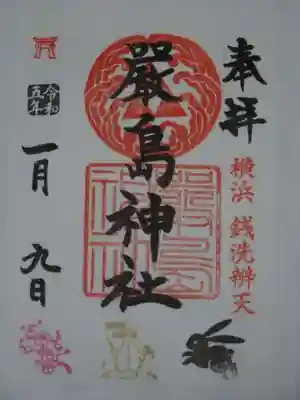 奉拝
横浜 銭洗辨天
嚴島神社
令和
五年
一月
九日